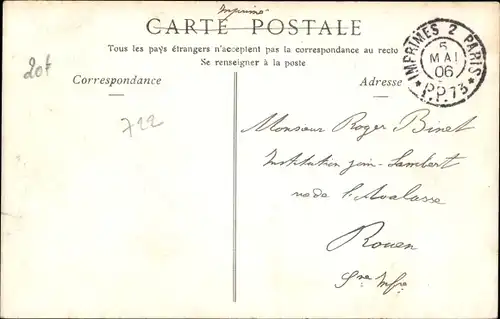 Imprimé
CARTE POSTALE
Tous les pays étrangers n'acceptent pas la correspondance au recto
Se renseigner à la poste
Correspondance
Adresse
IMPRIMES 2 PARIS
5
MAI
06
P.P.73
20f
722
Monsieur Roger Binet
Institution Join-Lambert
rue de l'Avalasse
Rouen
Sne Infre